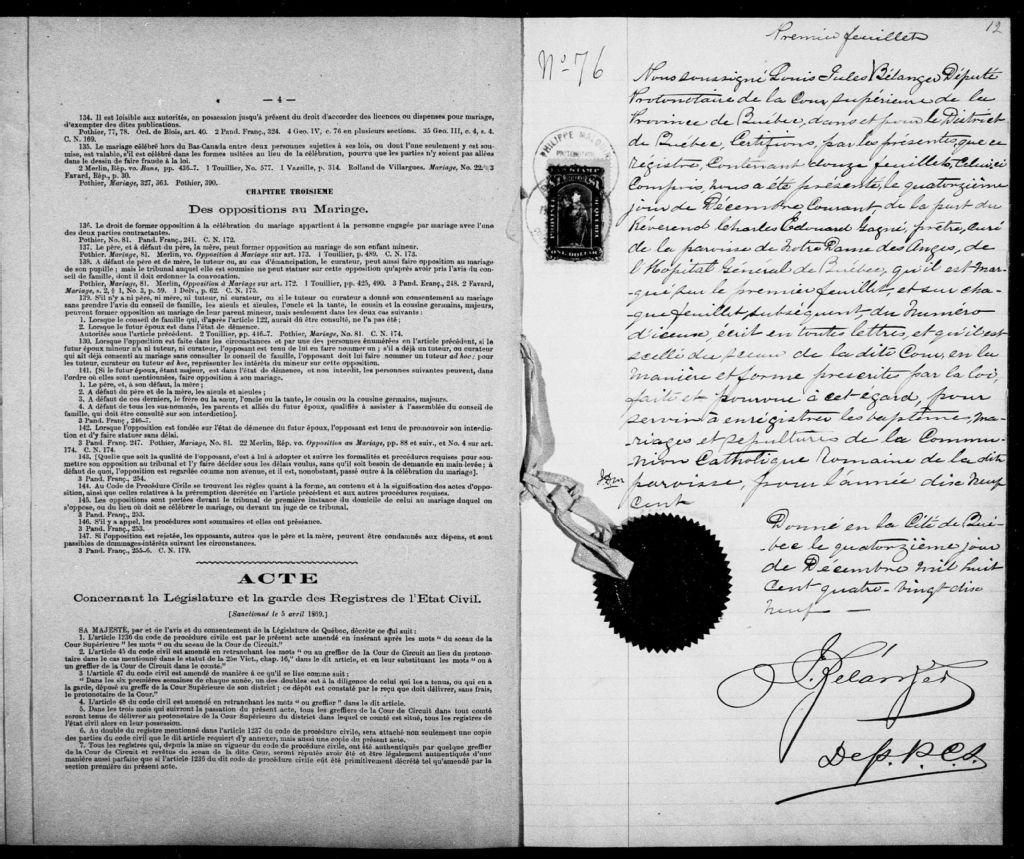 — 4 —
134. Il est loisible aux autorités, en possession jusqu'à présent du droit d'accorder des licences ou dispenses pour mariage,
d'exempter des dites publications.
Pothier, 77, 78. Ord. de Blois, art. 40. 2 Pand. Franç., 324. 4 Geo. IV, c. 76 en plusieurs sections. 35 Geo. III, c. 4, s. 4.
C. N. 169.
135. Le mariage célébré hors du Bas-Canada entre deux personnes sujettes à ses lois, ou dont l'une seulement y est sou-
mise, est valable, s'il est célébré dans les formes usitées au lieu de la célébration, pourvu que les parties n'y soient pas allées
dans le dessin de faire fraude à la loi.
2 Merlin, Rép. vo. Bans, pp. 436-7. 1 Touillier, No. 577. 1 Vazeille, p. 314. Rolland de Villargues. Mariage, No. 22
Favard, Rép., p. 30.
Pothier, Mariage, 327, 363. Pothier, 390.
CHAPITRE TROISIEME
Des oppositions au Mariage.
136. Le droit de former opposition à la célébration du mariage appartient à la personne engagée par mariage avec l'une
des deux parties contractantes.
Pothier, No. 81. Pand. Franç., 241. C. N. 172.
137. Le père, et à défaut du père, la mère, peut former opposition au mariage de son enfant mineur.
Pothier. Mariage, 81. Merlin, vo. Opposition à Mariage sur art. 173. 1 Touillier, p. 489. C. N. 173.
138. A défaut de père et de mère, le tuteur ou, au cas d'émancipation, le curateur, peut aussi faire opposition au mariage
de son pupille; mais le tribunal auquel elle est soumise ne peut statuer sur cette opposition qu'après avoir pris l'avis du con-
seil de famille, dont il doit ordonner la convocation.
Pothier, Mariage, 81. Merlin, Opposition à Mariage sur art. 172. 1 Touillier, pp. 425, 490. 3 Pand. Franç., 248. 2 Favard,
Mariage, s. 2, § 1, No. 3, p. 59. 1 Delv., p. 62. C. N. 175.
179. S'il n'y a ni père, ni mère, ni tuteur, ni curateur, ou si le tuteur ou curateur a donné son consentement au mariage
sans prendre l'avis du conseil de famille, les aïeuls et aïeules, l'oncle et la tante, le cousin et la cousine germains, majeurs,
peuvent former opposition au mariage de leur parent mineur, mais seulement dans les deux cas suivants:
1. Lorsque le conseil de famille qui, d'après l'article 122, aurait dû être consulté, ne l'a pas été;
2. Lorsque le futur époux est dans l'état de démence.
Autorités sous l'article précédent. 2 Touillier, pp. 446-7. Pothier, Mariage, No. 81. C. N. 174.
130. Lorsque l'opposition est faite dans les circonstances et par une des personnes énumérées en l'article précédent, si le
futur époux mineur n'a ni tuteur, ni curateur, l'opposant est tenu de lui en faire nommer un; s'il a déjà un tuteur, ou curateur
qui ait déjà consenti au mariage sans consulter le conseil de famille, l'opposant doit lui faire nommer un tuteur ad hoc: pour
les tuteur, curateur ou tuteur ad hoc, représenter les intérêts du mineur sur cette opposition.
141. [Si le futur époux, étant majeur, est dans l'état de démence, et non interdit, les personnes suivantes peuvent, dans
l'ordre où elles sont mentionnées, faire opposition à son mariage.
1. Le père, et, à son défaut, la mère;
2. A défaut du père et de la mère, les aïeuls et aïeules;
3. A défaut de ces derniers, le frère ou la sœur, l'oncle ou la tante, le cousin ou la cousine germains, majeurs.
4. A défaut de tous les sus-nommés, les parents et alliés du futur époux, qualifiés à assister à l'assemblée du conseil de
famille, qui doit être consulté sur son interdiction].
3 Pand. Franç., 246-7.
142. Lorsque l'opposition est fondée sur l'état de démence du futur époux, l'opposant est tenu de promouvoir son interdic-
tion et d'y faire statuer sans délai.
3 Pand. Franç. 247. Pothier, Mariage, No. 81. 22 Merlin, Rép. vo. Opposition au Mariage, pp. 88 et suiv., et No. 4 sur art.
174. C. N. 174.
143. [Quelque que soit la qualité de l'opposant, c'est à lui à adopter et suivre les formalités et procédures requises pour sou-
mettre son opposition au tribunal et l'y faire décider sous les délais voulus, sans qu'il soit besoin de demande en main-levée; à
défaut de quoi, l'opposition est regardée comme non avenue, et il est, nonobstant, passé outre à la célébration du mariage].
3 Pand. Franç., 254.
144. Au Code de Procédure Civile se trouvent les règles quant à la forme, au contenu et à la signification des actes d'oppo-
sition, ainsi que celles relatives à la préremption décrétée en l'article précédent et aux autres procédures requises.
145. Les oppositions sont portées devant le tribunal de première instance du domicile de celui au mariage duquel on
s'oppose, ou du lieu où doit se célébrer le mariage, ou devant un juge de ce tribunal.
3 Pand. Franç., 253.
146. S'il y a appel, les procédures sont sommaires et elles ont préséance.
3 Pand. Franç., 253.
147. Si l'opposition est rejetée, les opposants, autres que le père et la mère, peuvent être condamnés aux dépens, et sont
passibles de dommages-intérêts suivant les circonstances.
3 Pand. Franç., 255-6. C. N. 179.
ACTE
Concernant la Législature et la garde des Registres de l'Etat Civil.
[Sanctionné le 5 avril 1869.]
SA MAJESTÉ, par et de l'avis et du consentement de la Législature de Québec, décrète ce qui suit:
1. L'article 1236 du code de procédure civile est par le présent acte amendé en insérant après les mots "du sceau de la
Cour Supérieure" les mots "ou du sceau de la Cour de Circuit."
2. L'article 45 du code civil est amendé en retranchant les mots "ou au greffier de la Cour de Circuit au lieu du protono-
taire dans le cas mentionné dans le statut de la 25e Vict., chap. 16," dans le dit article, et en leur substituant les mots "ou à
un greffier de la Cour de Circuit dans le comté."
3 L'article 47 du code civil est amendé de manière à ce qu'il se lise comme suit:
"Dans les six premières semaines de chaque année, un des doubles est à la diligence de celui qui les a tenus, ou qui en a
la garde, déposé au greffe de la Cour Supérieure de son district; ce dépôt est constaté par le reçu que doit délivrer, sans frais,
le protonotaire de la Cour."
4. L'article 48 du code civil est amendé en retranchant les mots "ou greffier" dans le dit article.
5. Dans les trois mois qui suivront la passation du présent acte, tous les greffiers de la Cour de Circuit dans tout comté
seront tenus de délivrer au protonotaire de la Cour Supérieure du district dans lequel ce comté est situé, tous les registres de
l'état civil alors en leur possession.
6. Au double du registre mentionné dans l'article 1237 du code de procédure civile, sera attaché non seulement une copie
des parties du code civil que le dit article requiert d'y annexer, mais aussi une copie du présent acte.
7. Tous les registres qui, depuis la mise en vigueur du code de procédure civile, ont été authentiqués par quelque greffier
de la Cour de Circuit et revêtus du sceau de la dite Cour, seront réputés avoir été et être légalement authentiqués d'une
manière aussi parfaite que si l'article 1236 du dit code de procédure civile eût été primitivement décrété tel qu'amendé par la
section première du présent acte.
12
Premier feuillet
No 76
Nous soussigné Louis Jules Bélanger Député
Protonotaire de la Cour supérieure de la
Province de Québec, dans et pour le District
de Québec, Certifions, par les présentes, que ce
registre, Contenant douze feuillets, Celui-ci
Compris, nous a été présenté, le quatorzième
jour de Décembre Courant de la part du
Révérend Charles Edouard Gagné, prêtre, curé
de la paroisse de Notre Dame des Anges, de
l'Hôpital Général de Québec, qu'il est mar-
qué sur le premier feuillet, et sur cha-
que feuillet subséquent, du Numéro
d'iceux, écrit en toutes lettres, et qu'il est
scellé du sceau de la dite Cour, en la
manière et forme prescrites par la loi,
faite et pourvue à cet égard, pour
servir à enregistrer les baptêmes, ma-
riages et sépultures de la Commu-
nion Catholique Romaine de la dite
paroisse, pour l'année dix neuf
Cent
Donné en la Cité de Qué-
bec le quatorzième jour
de Décembre mil huit
Cent quatre-vingt dix
neuf —
PHILIPPE MALOUIN
J. Bélanger
Dep. P. C. S.